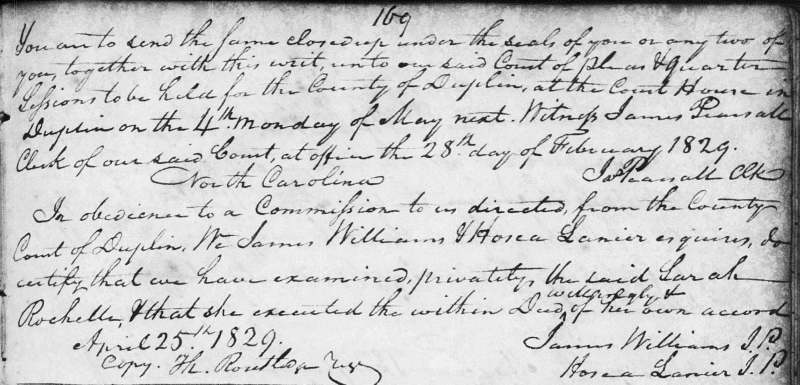 169
You are to send the same closed up under the seals of you or any two of
you, together with this writ, unto our said Court of pleas & quarter
Sessions to be held for the County of Duplin, at the Court House in
Duplin on the 4th Monday of May next. Witness James Pearsall
Clerk of our said Court, at office the 28th day of February 1829.
North Carolina Jas Pearsall Clk
In obedience to a Commission to us directed, from the County
Court of Duplin, We James Williams & Hosea Lanier esquires, do
certify that we have examined, privately, the said Sarah
Rochelle, & that she executed the within Deed, willingly & of her own accord
April 25th 1829. James Williams J.P.
Copy. Th. Routledge Hosea Lanier J.P.